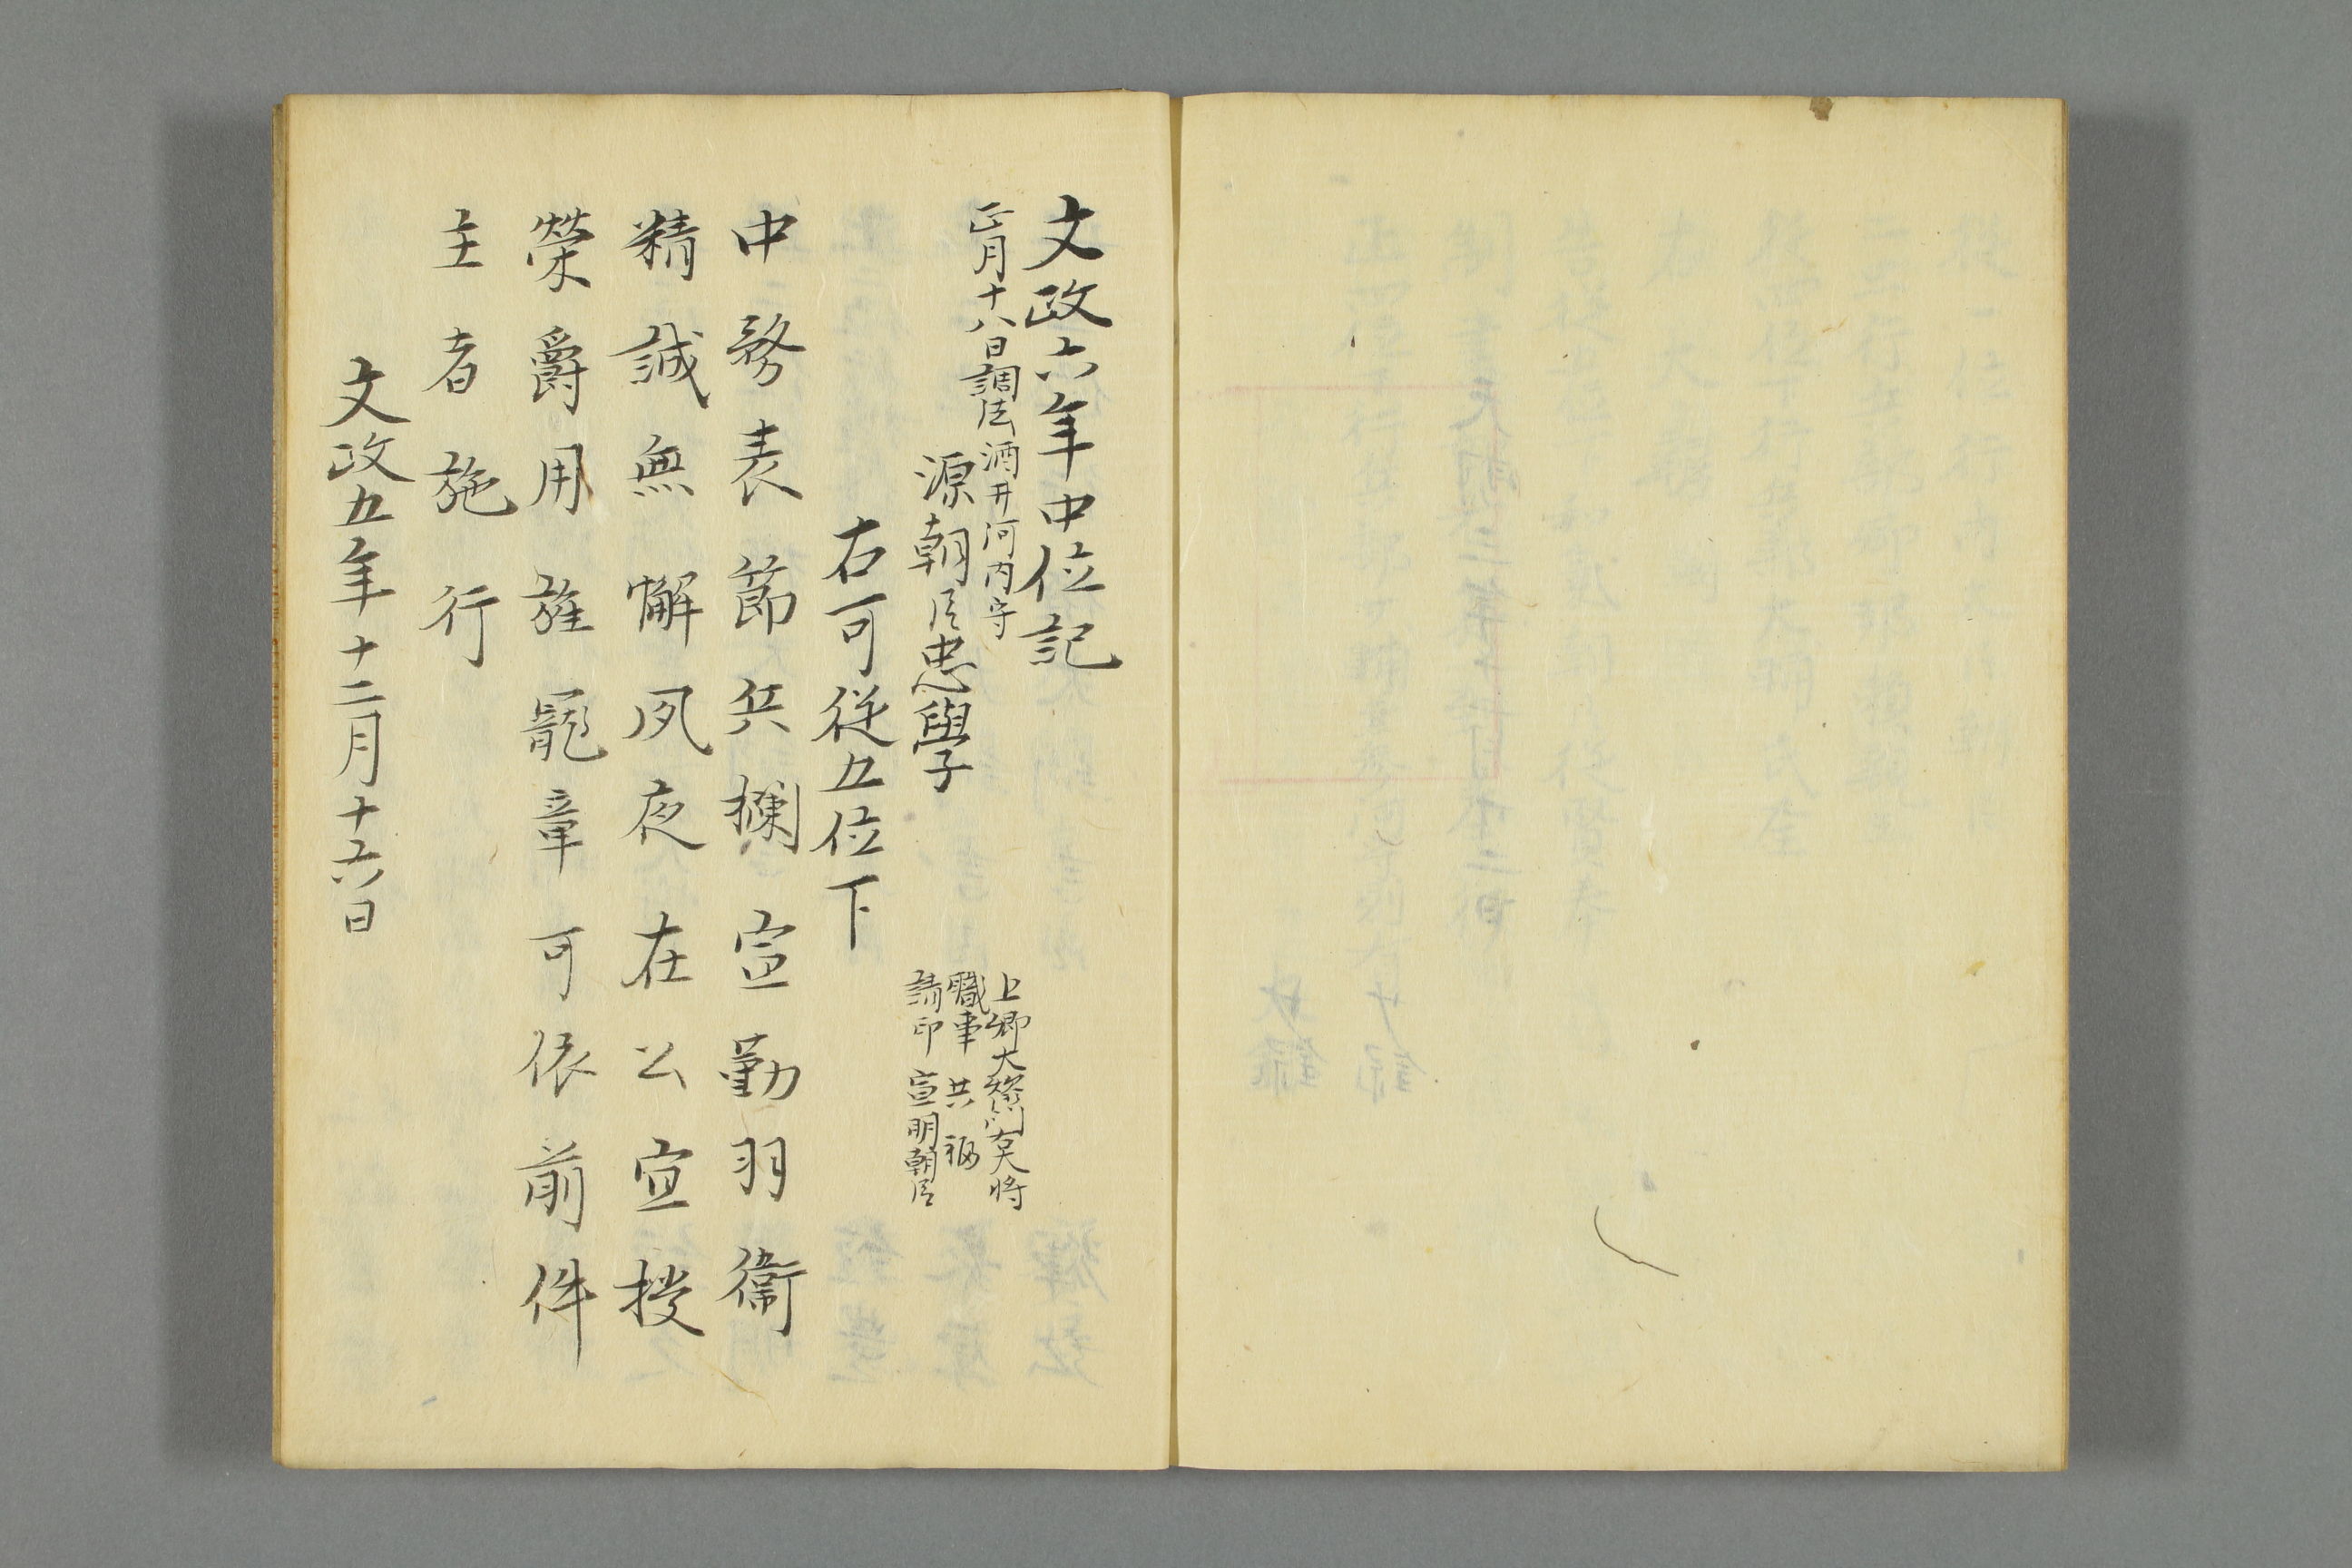 文政六年中位記
正月十八日調法
酒井河内守
源朝臣忠學
上卿大炊御門右大将
職事 共福
請印 宣明朝臣
右可従五位下
中務表節兵欄宣勤羽衞
精誠無懈夙夜在公宜授
榮爵用旌寵章可依前件
主者施行
文政五年十二月十六日